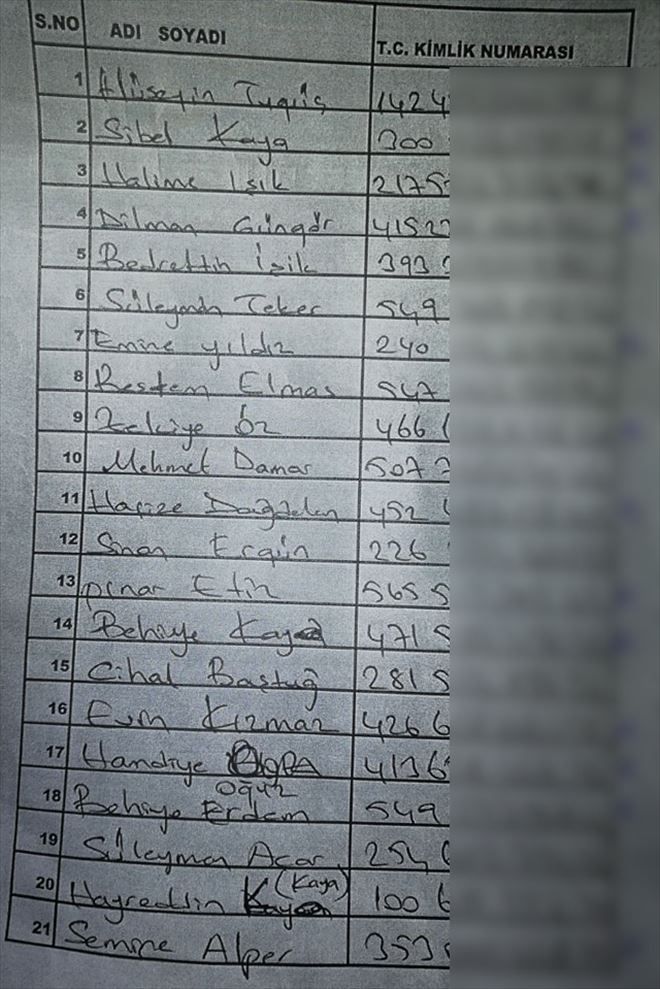 S.NO ADI SOYADI T.C. KİMLİK NUMARASI
1 Hüseyin 1424
2 Sibel Kaya 300
3 Halime Işık 2175
4 Dilman Güngör 4152
5 Bedrettin Işik 393
6 Süleyman Teker 549
7 Emine yıldız 240
8 Elmas 547
9 Zekiye öz 466
10 Mehmet Damar 507
11 452
12 Sinan Ergün 226
13 pınar Etin 565 5
14 Behiye Kaya 471 5
15 Cihal Baştuğ 281 5
16 Kızmaz 426 6
17 Handiye 4136
Oğuz
18 Behiye Erdem 549
19 Süleyman Acar 254
20 Hayreddin (Kaya) 100 6
21 Semine Alper 353